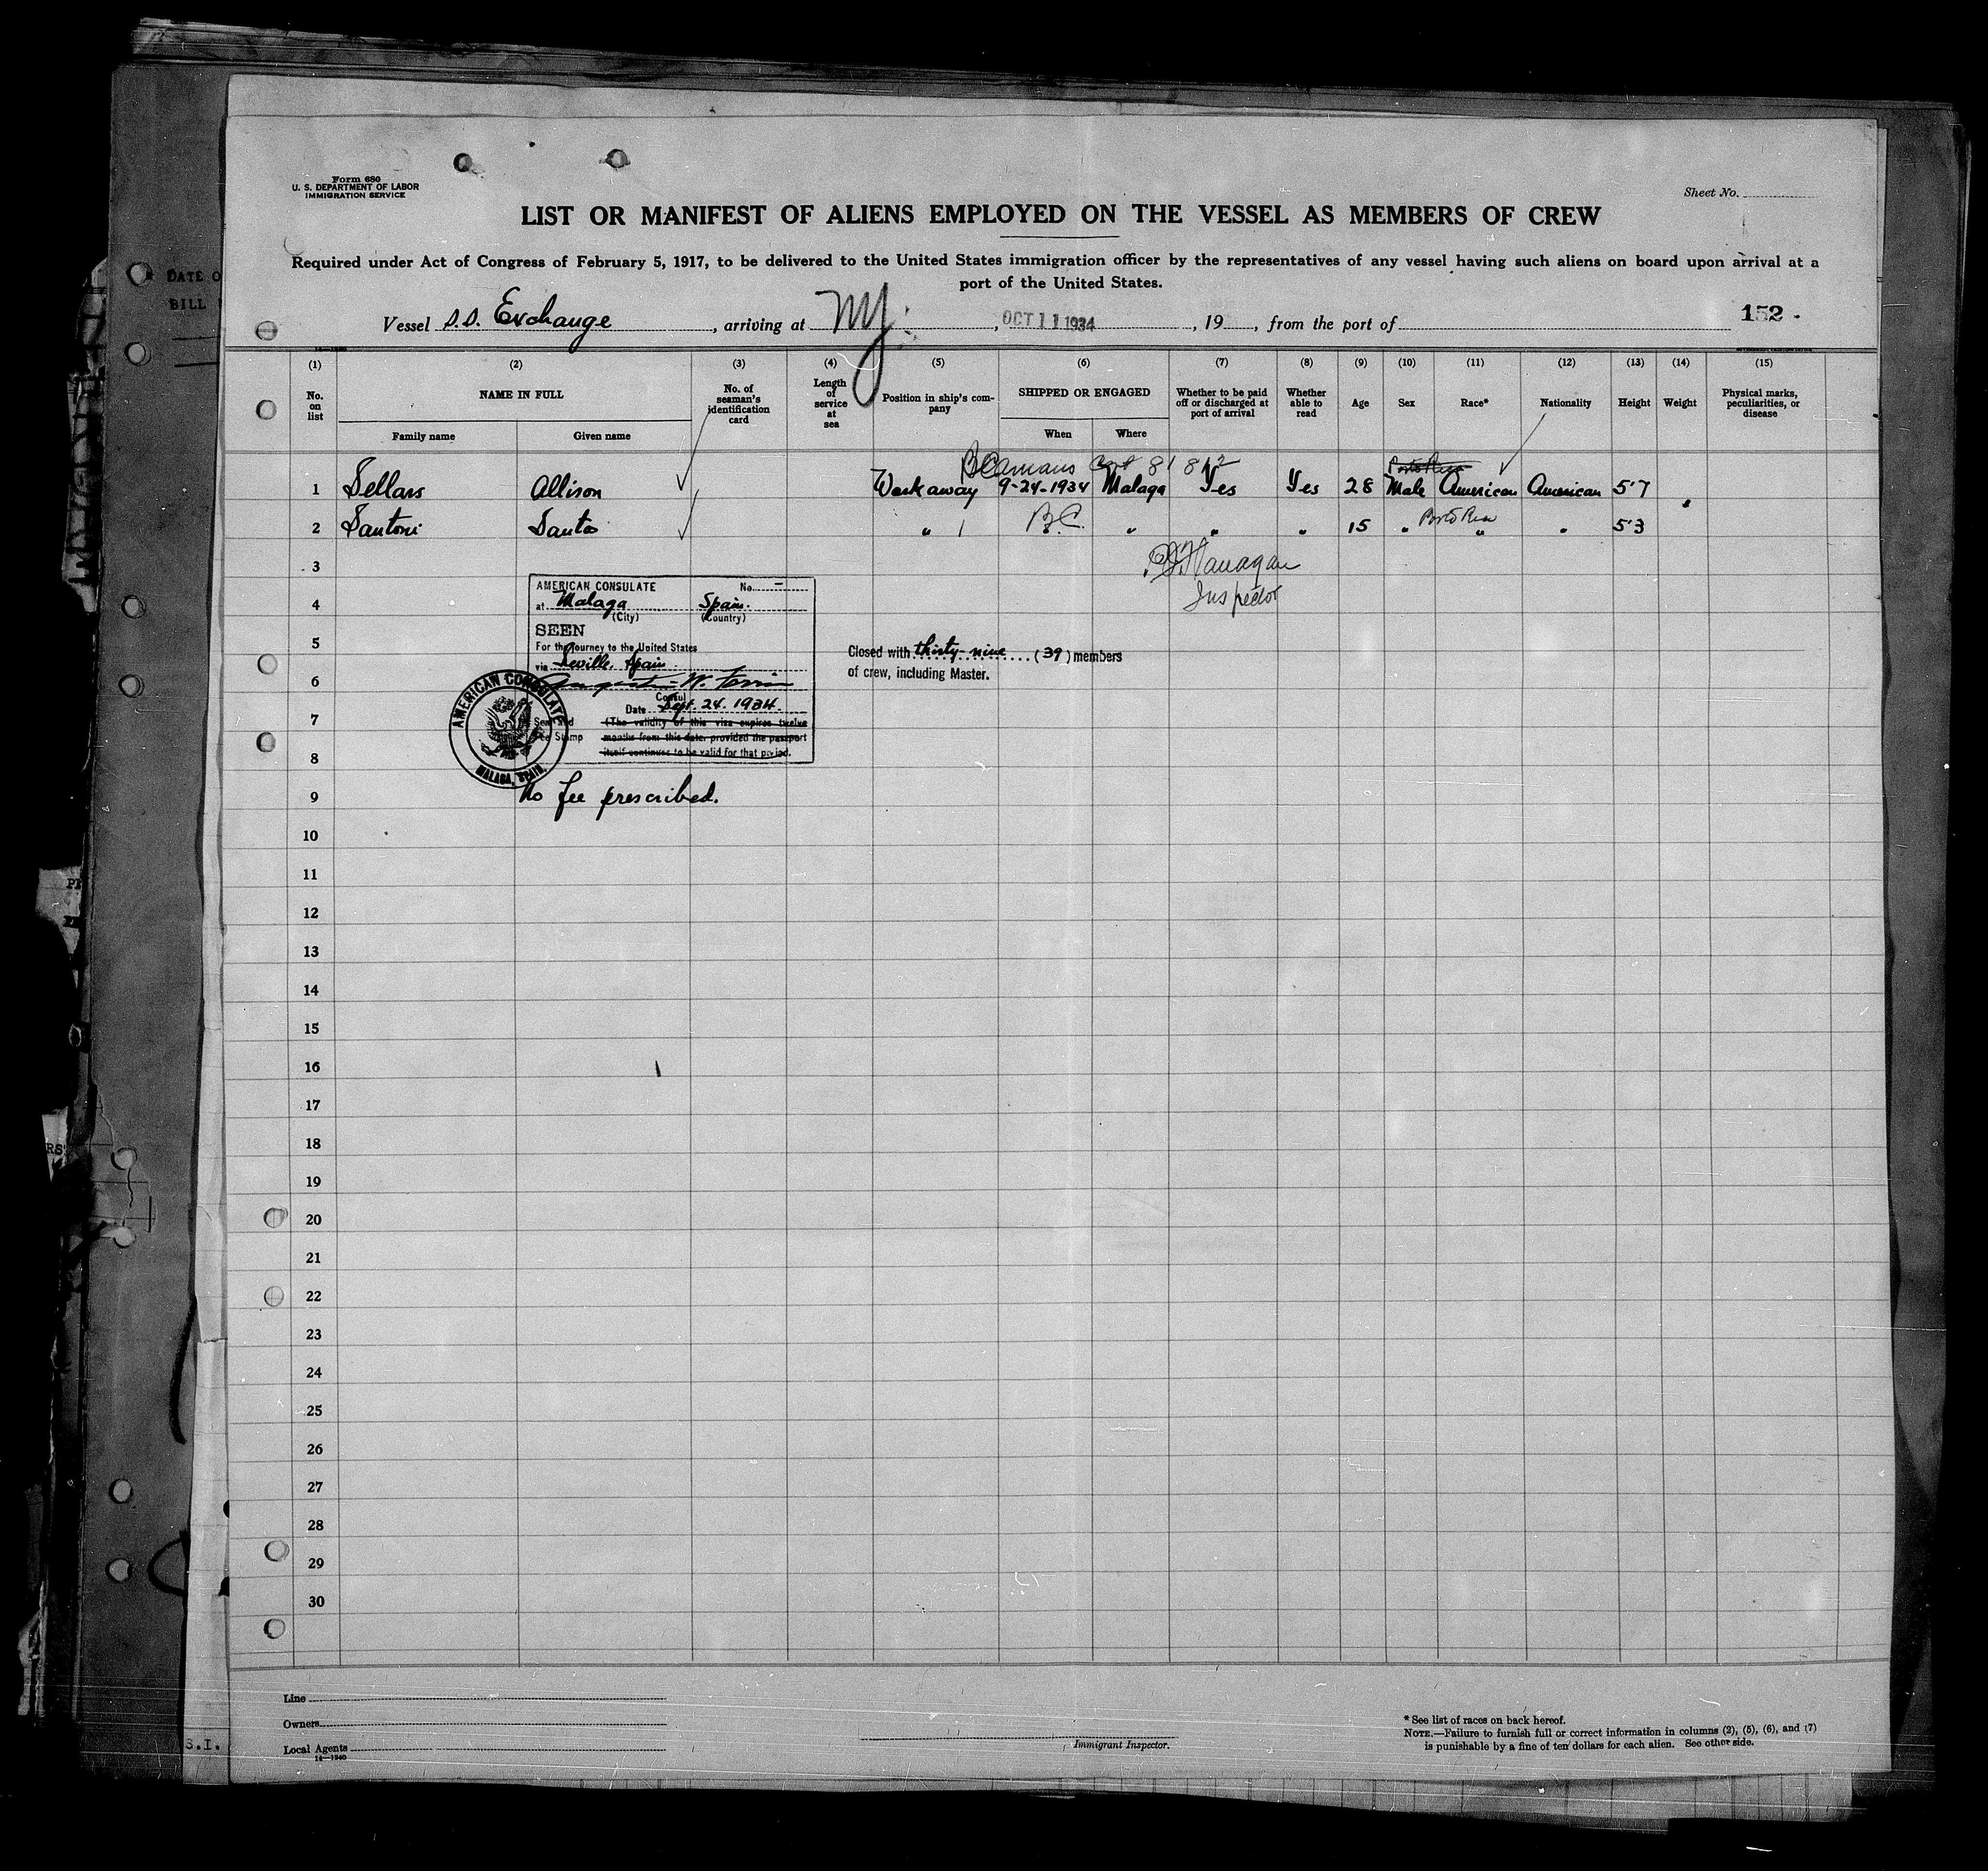 DATE O
BILL
Form 680
U. S. DEPARTMENT OF LABOR
IMMIGRATION SERVICE
Sheet No.
LIST OR MANIFEST OF ALIENS EMPLOYED ON THE VESSEL AS MEMBERS OF CREW
Required under Act of Congress of February 5, 1917, to be delivered to the United States immigration officer by the representatives of any vessel having such aliens on board upon arrival at a
port of the United States.
Vessel S.S. Exchange, arriving at NY., OCT 11 1934, 19, from the port of
152.
(1) (2) (3) (4) (5) (6) (7) (8) (9) (10) (11) (12) (13) (14) (15)
No. on list
NAME IN FULL
Family name Given name
No. of seaman's identification card
Length of service at sea
Position in ship's company
SHIPPED OR ENGAGED
When Where
Whether to be paid off or discharged at port of arrival
Whether able to read
Age Sex Race* Nationality Height Weight
Physical marks, peculiarities, or disease
1 Sellars Allison Workaway 9-24-1934 Malaga Yes Yes 28 Male American American 5'7
2 Santoni Santo " B.C. " " " 15 " Porto Rico " " 5'3
3
Flanagan
Inspector
4
5
6
7
8
9
AMERICAN CONSULATE No. -
at Malaga Spain.
(City) (Country)
SEEN
For the journey to the United States
via Seville, Spain.
Consul
Date Sept. 24. 1934.
Seal and
Fee Stamp
(The validity of this visa expires twelve
months from this date, provided the passport
itself continues to be valid for that period.
AMERICAN CONSULATE
MALAGA, SPAIN.
No fee prescribed.
Closed with thirty-nine (39) members
of crew, including Master.
10
11
12
13
14
15
16
17
18
19
20
21
22
23
24
25
26
27
28
29
30
Line
Owners
Local Agents
14—1240
Immigrant Inspector.
* See list of races on back hereof.
NOTE.—Failure to furnish full or correct information in columns (2), (5), (6), and (7)
is punishable by a fine of ten dollars for each alien. See other side.
S.I.